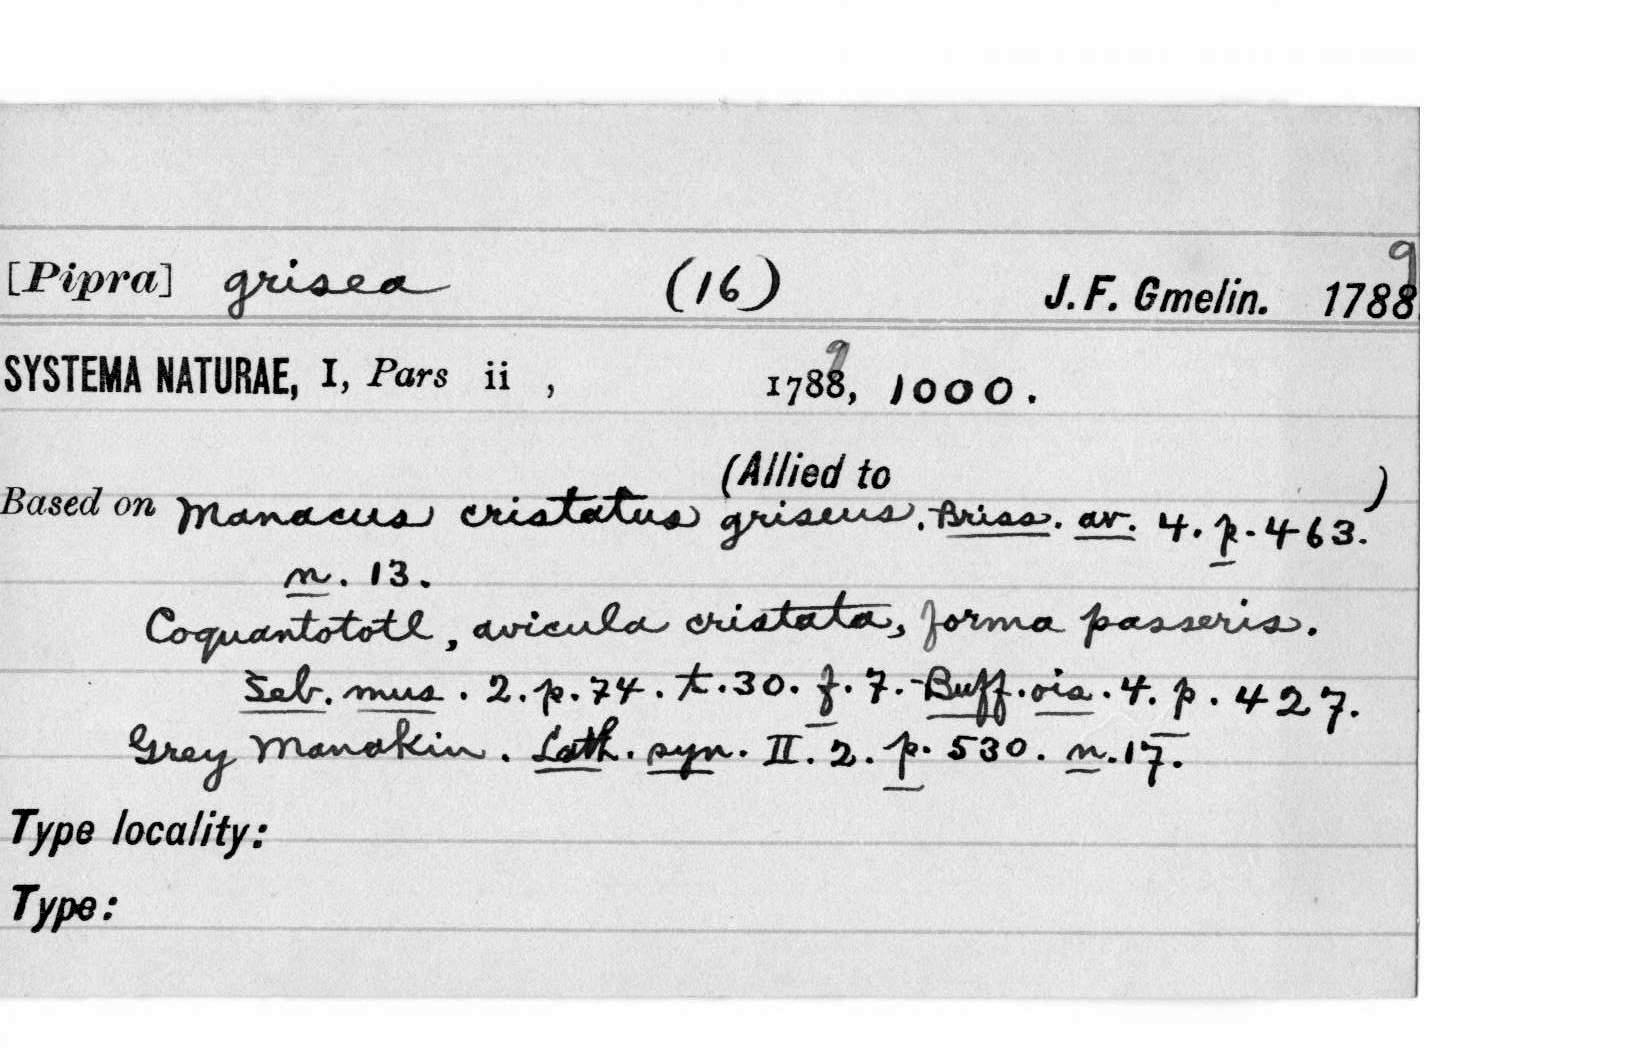 [Pipra] grisea (16) J. F. Gmelin. 1788 9
SYSTEMA NATURAE, I, Pars ii , 1788 9, 1000.
(Allied to )
Based on Manacus cristatus griseus. Briss. av. 4. p. 463.
n. 13.
Coquantototl, avicula cristata, forma passeris.
Seb. mus. 2. p. 74. t. 30. f. 7. - Buff. ois. 4. p. 427.
Grey Manakin. Lath. syn. II. 2. p. 530. n. 17.
Type locality:
Type: